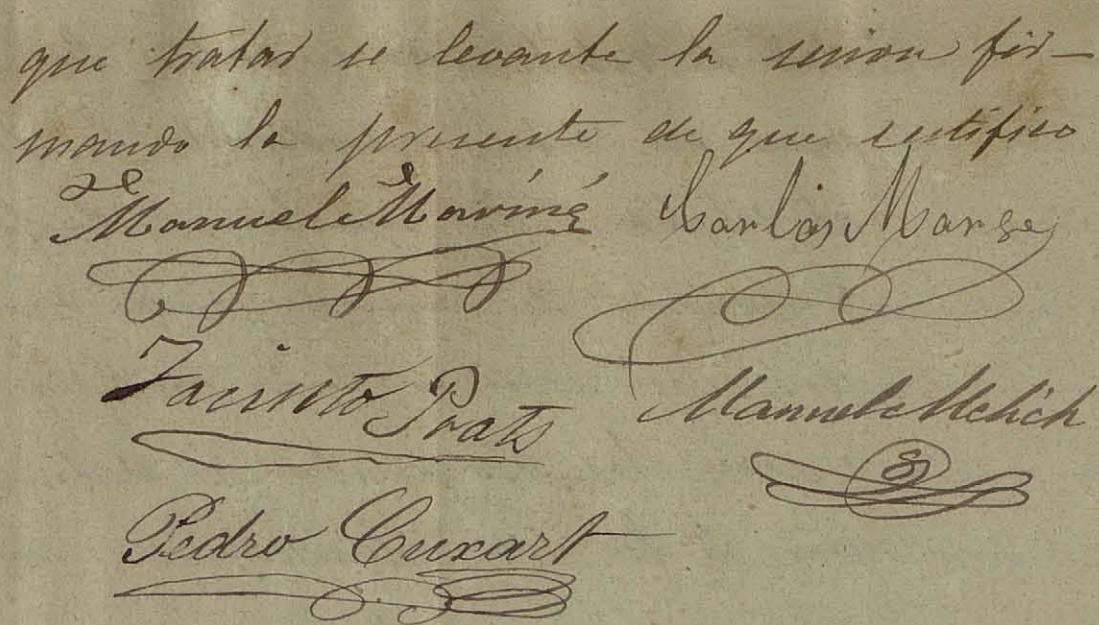 que tratar se levante la sesion fir-
mando la presente de que certifico
Manuel Mariné Carlos Marge
Jacinto Prats Manuel Melich
Pedro Cuxart